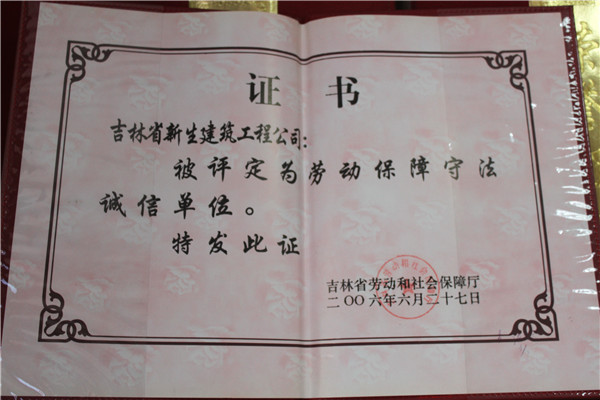 证书
吉林省新生建筑工程公司：
被评定为劳动保障守法
诚信单位。
特发此证
吉林省劳动和社会保障厅
二〇〇六年六月二十七日